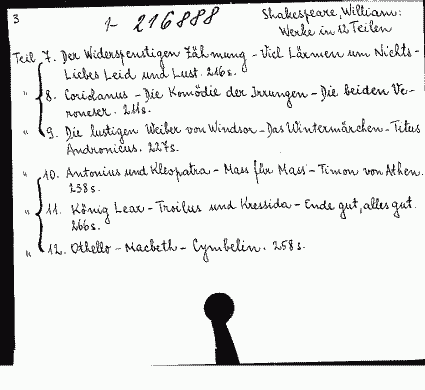 3
1- 216888
Shakespeare, William:
Werke in 12 Teilen
Teil 7. Der Widerspenstigen Zähmung - Viel Lärmen um Nichts -
Liebes Leid und Lust. 216 s.
" 8. Coriolanus - Die Komödie der Irrungen - Die beiden Ve-
roneser. 211 s.
" 9. Die lustigen Weiber von Windsor - Das Wintermärchen - Titus
Andronicus. 227 s.
" 10. Antonius und Kleopatra - Mass für Mass - Timon von Athen.
258 s.
" 11. König Lear - Troilus und Kressida - Ende gut, alles gut.
266 s.
" 12. Othello - Macbeth - Cymbelin. 258 s.